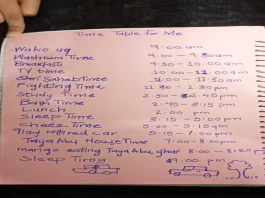 Time Table for Me
Wake up 9:00 am
Washroom Time 9:00 - 9:30 am
Breakfast 9:30 - 10:00 am
TV time 10:00 - 11:00 am
Time 11:00 - 11:30 am
Fighting Time 11:30 - 2:30 pm
Study Time 2:30 - 2:45 pm
Bath Time 2:45 - 3:15 pm
Lunch 2:00 pm
Sleep Time 3:15 - 5:00 pm
Cheez Time 5:00 - 5:15 pm
Play with red car 5:15 - 7:00 pm
Taya Abu House Time 7:00 - 8:00 pm
mango eating Taya Abu ghar 8:00 pm
Sleep Time 9:00 pm